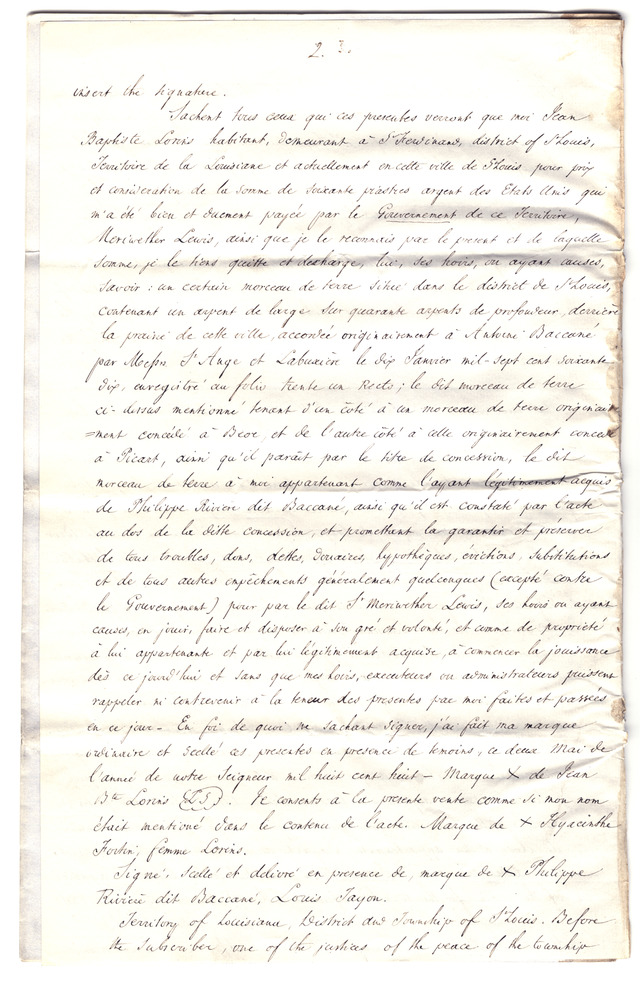 2. 3.
insert the signature.
Sachent tous ceux qui ces presentes verront que moi Jean
Baptiste Lorins habitant, demeurant à St Ferdinand, district of St Louis,
Territoire de la Louisiane et actuellement en cette ville de St Louis pour prix
et consideration de la somme de soixante piastres argent des Etats Unis qui
m'a été bien et duement payée par le Gouvernement de ce Territoire,
Meriwether Lewis, ainsi que je le reconnais par le present et de laquelle
somme, je le tiens quitte et decharge, lui, ses hoirs, ou ayant causes,
savoir: un certain morceau de terre situé dans le district de St Louis,
contenant un arpent de large sur quarante arpents de profondeur, derrière
la prairie de cette ville, accordée originairement à Antoine Baccané
par Messrs St Ange et Labuxière le dix Janvier mil-sept cent soixante
dix, enregistré au folio trente un Recto; le dit morceau de terre
ci-dessus mentionné tenant d'un côté à un morceau de terre originair
=ment concédé à Beor, et de l'autre côté à celle originairement concédé
à Picart, ainsi qu'il parait par le titre de concession, le dit
morceau de terre à moi appartenant comme l'ayant légitimement acquis
de Philippe Rivière dit Baccané, ainsi qu'il est constaté par l'acte
au dos de la ditte concession, et promettant la garantir et préserver
de tous troubles, dons, dettes, Douaires, hypothèques, évictions, substitutions
et de tous autres empêchements généralement quelconques (excepté contre
le Gouvernement) pour par le dit Sr Meriwether Lewis, ses hoirs ou ayant
causes, en jouir, faire et disposer à son gré et volonté, et comme de propriété
à lui appartenante et par lui légitimement acquise, à commencer la jouissance
dès ce jourd'hui et sans que mes hoirs, executeurs ou administrateurs puissent
rappeler ni contrevenir à la teneur des presentes par moi faites et passées
en ce jour - En foi de quoi ne sachant signer, j'ai fait ma marque
ordinaire et scellé ces presentes en presence de temoins, ce deux Mai de
l'année de notre Seigneur mil huit cent huit - Marque X de Jean
Bte Lorins (L.S.). Je consents à la presente vente comme si mon nom
était mentioné dans le contenu de l'acte. Marque de X Hyacinthe
Fortin, femme Lorins.
Signé, scellé et délivré en presence de, marque de X Philippe
Rivière dit Baccané, Louis Tayon.
Territory of Louisiana, District and Township of St Louis. Before
the subscriber, one of the justices of the peace of the township